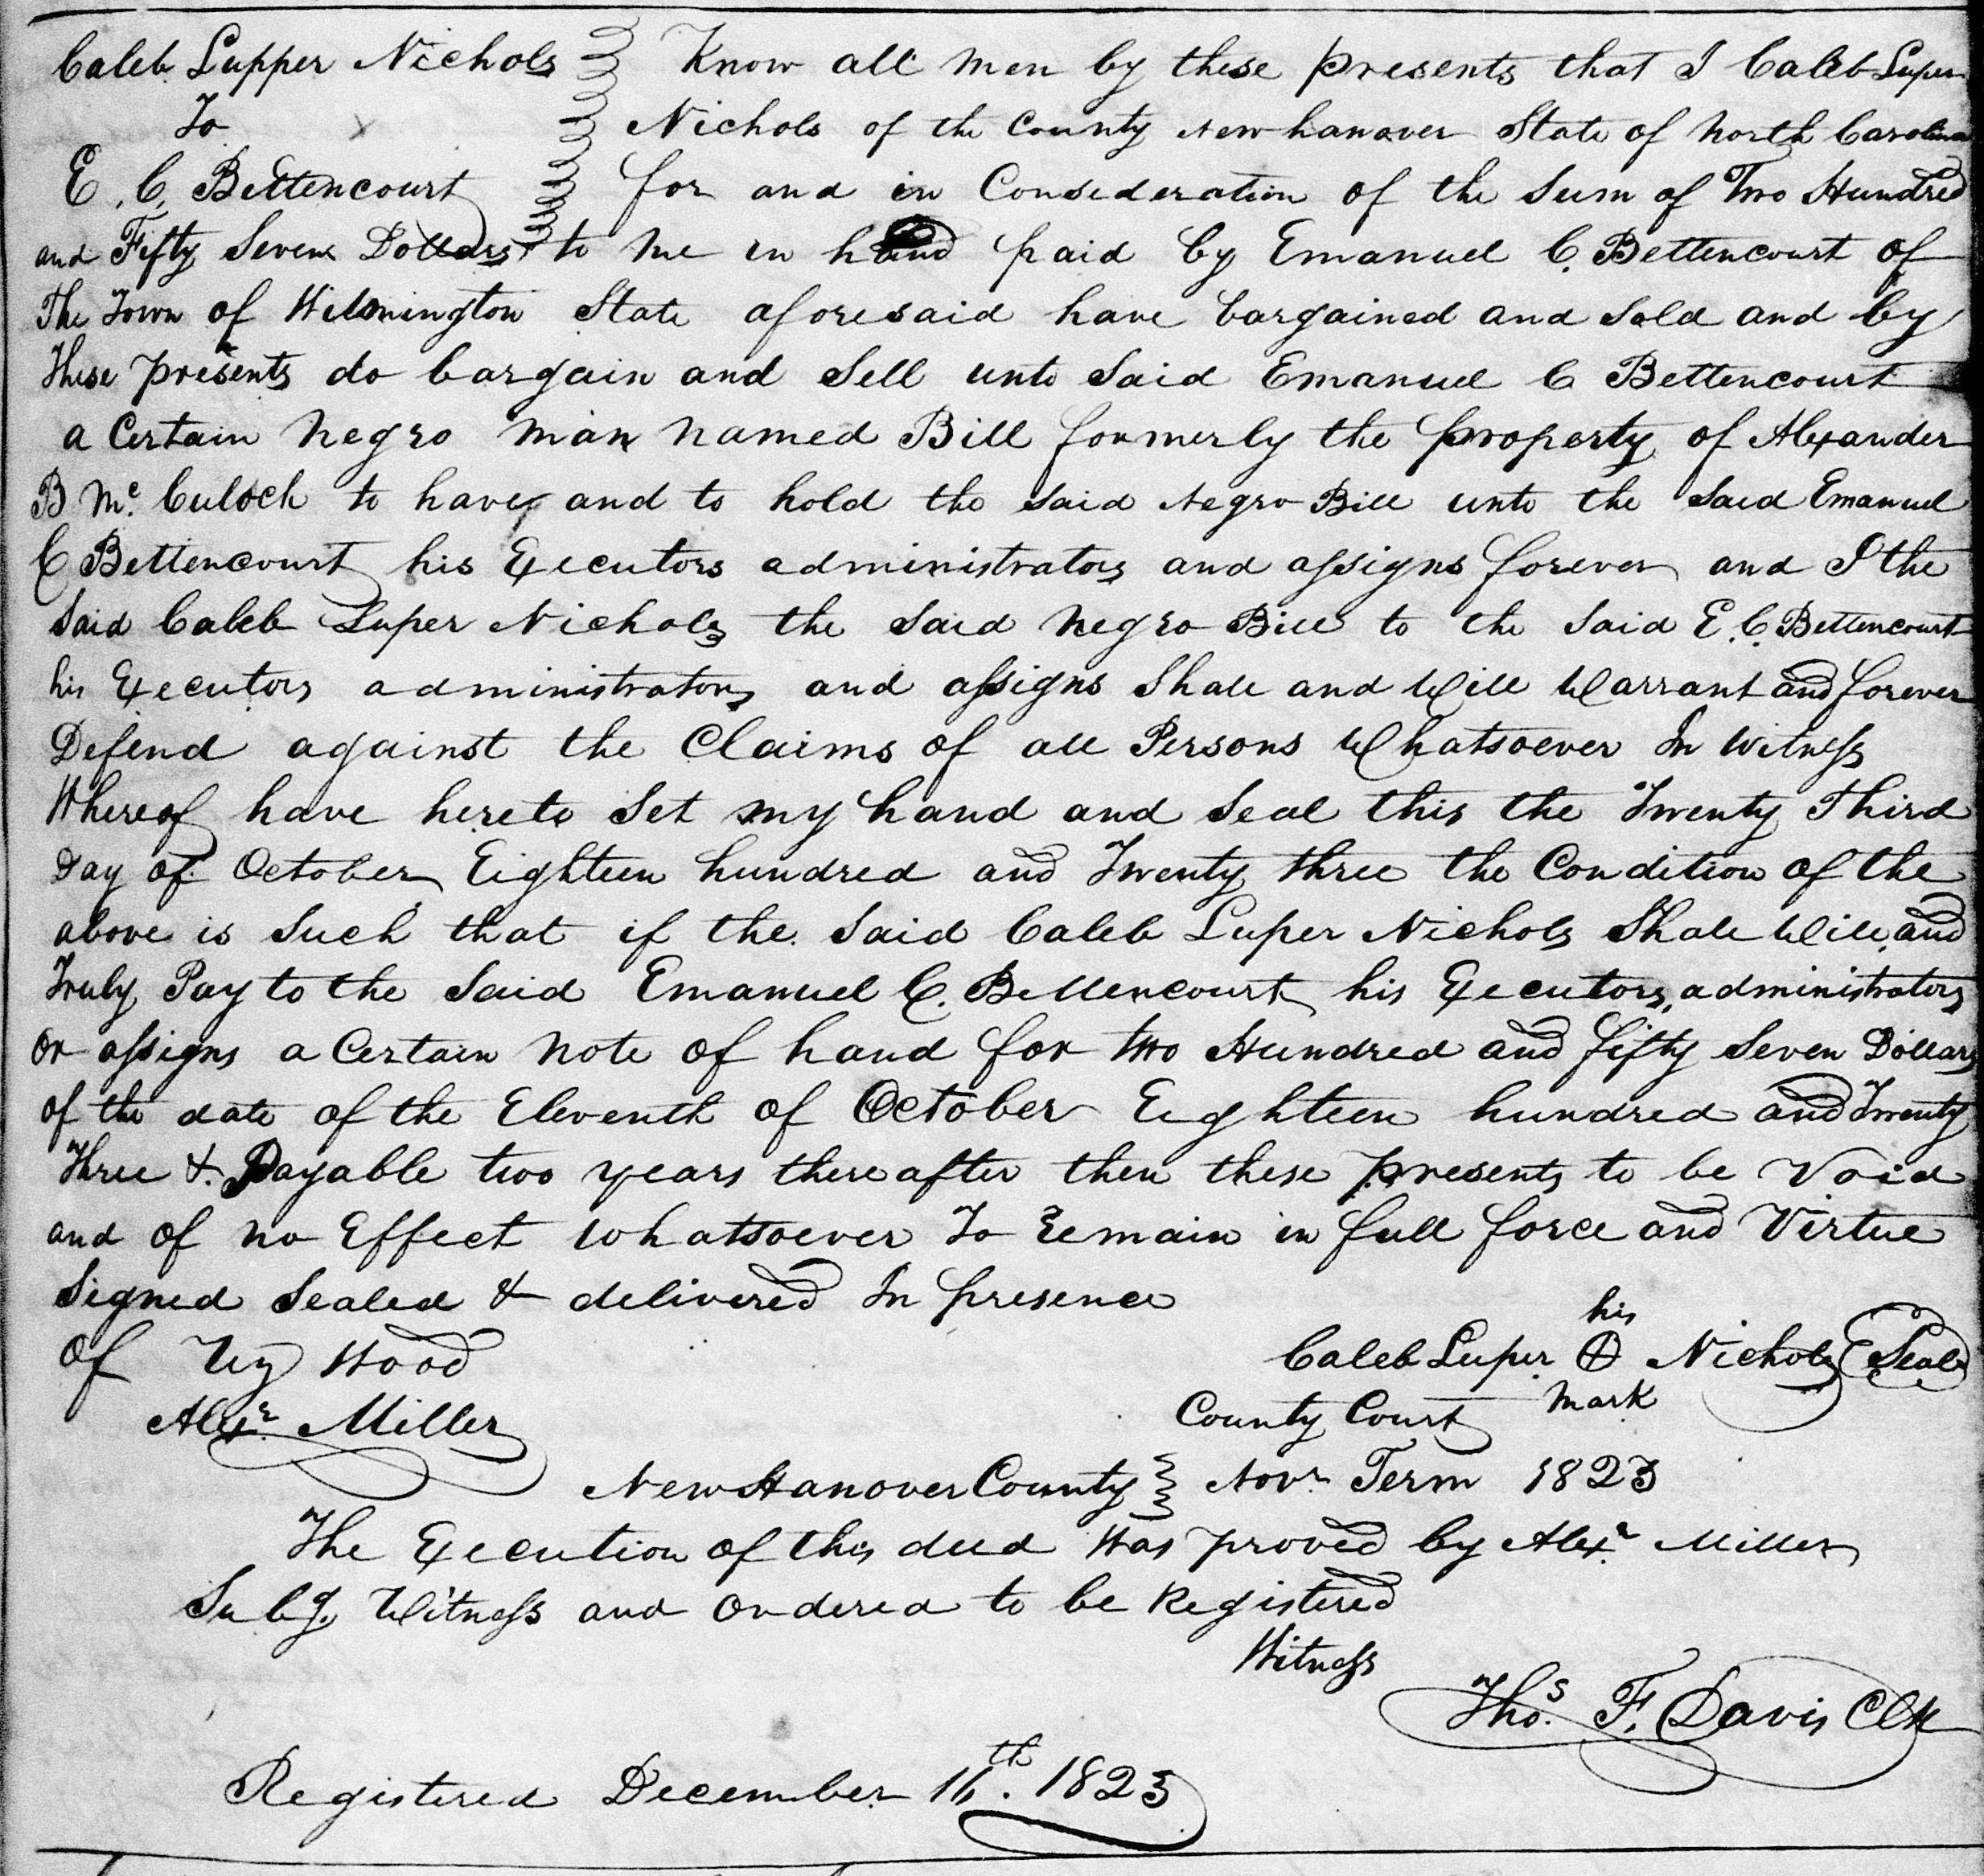 Caleb Lupper Nichols Know all men by these presents that I Caleb Luper
To Nichols of the County New hanover State of North Carolina
E. C. Bettencourt for and in Consederation of the Sum of Two Hundred
and Fifty Seven Dollars to me in hand paid by Emanuel C. Bettencourt of
The Town of Wilmington State aforesaid have bargained and Sold and by
these presents do bargain and Sell unto Said Emanuel C Bettencourt
a Certain Negro man named Bill formerly the property of Alexander
B Mc. Culoch to have and to hold the Said Negro Bill unto the Said Emanuel
C Bettencourt his Executors administrators and assigns forever and I the
Said Caleb Luper Nichols the Said Negro Bill to the Said E. C. Bettencourt
his Executors administrators and assigns Shall and Will Warrant and forever
Defend against the Claims of all Persons Whatsoever In Witness
Whereof have hereto Set my hand and Seal this the Twenty Third
Day of October Eighteen hundred and Twenty three the Condition of the
above is Such that if the Said Caleb Luper Nichols Shall Will and
Truly Pay to the Said Emanuel C. Bettencourt his Executors, administrators
or assigns a Certain Note of hand for two Hundred and fifty Seven Dollars
of the date of the Eleventh of October Eighteen hundred and Twenty
Three &. Payable two years thereafter then these presents to be Void
and of no Effect Whatsoever To remain in full force and Virtue
Signed Sealed & delivered In presence
of Wood
his
Caleb Luper Nichols Seal
mark
Alexr. Miller
County Court
New Hanover County Novr. Term 1823
The Execution of this deed Was proved by Alexr. Miller
Subg. Witness and Ordered to be Registered
Witness
Thos. F. Davis Clk
Registered December 16th. 1823